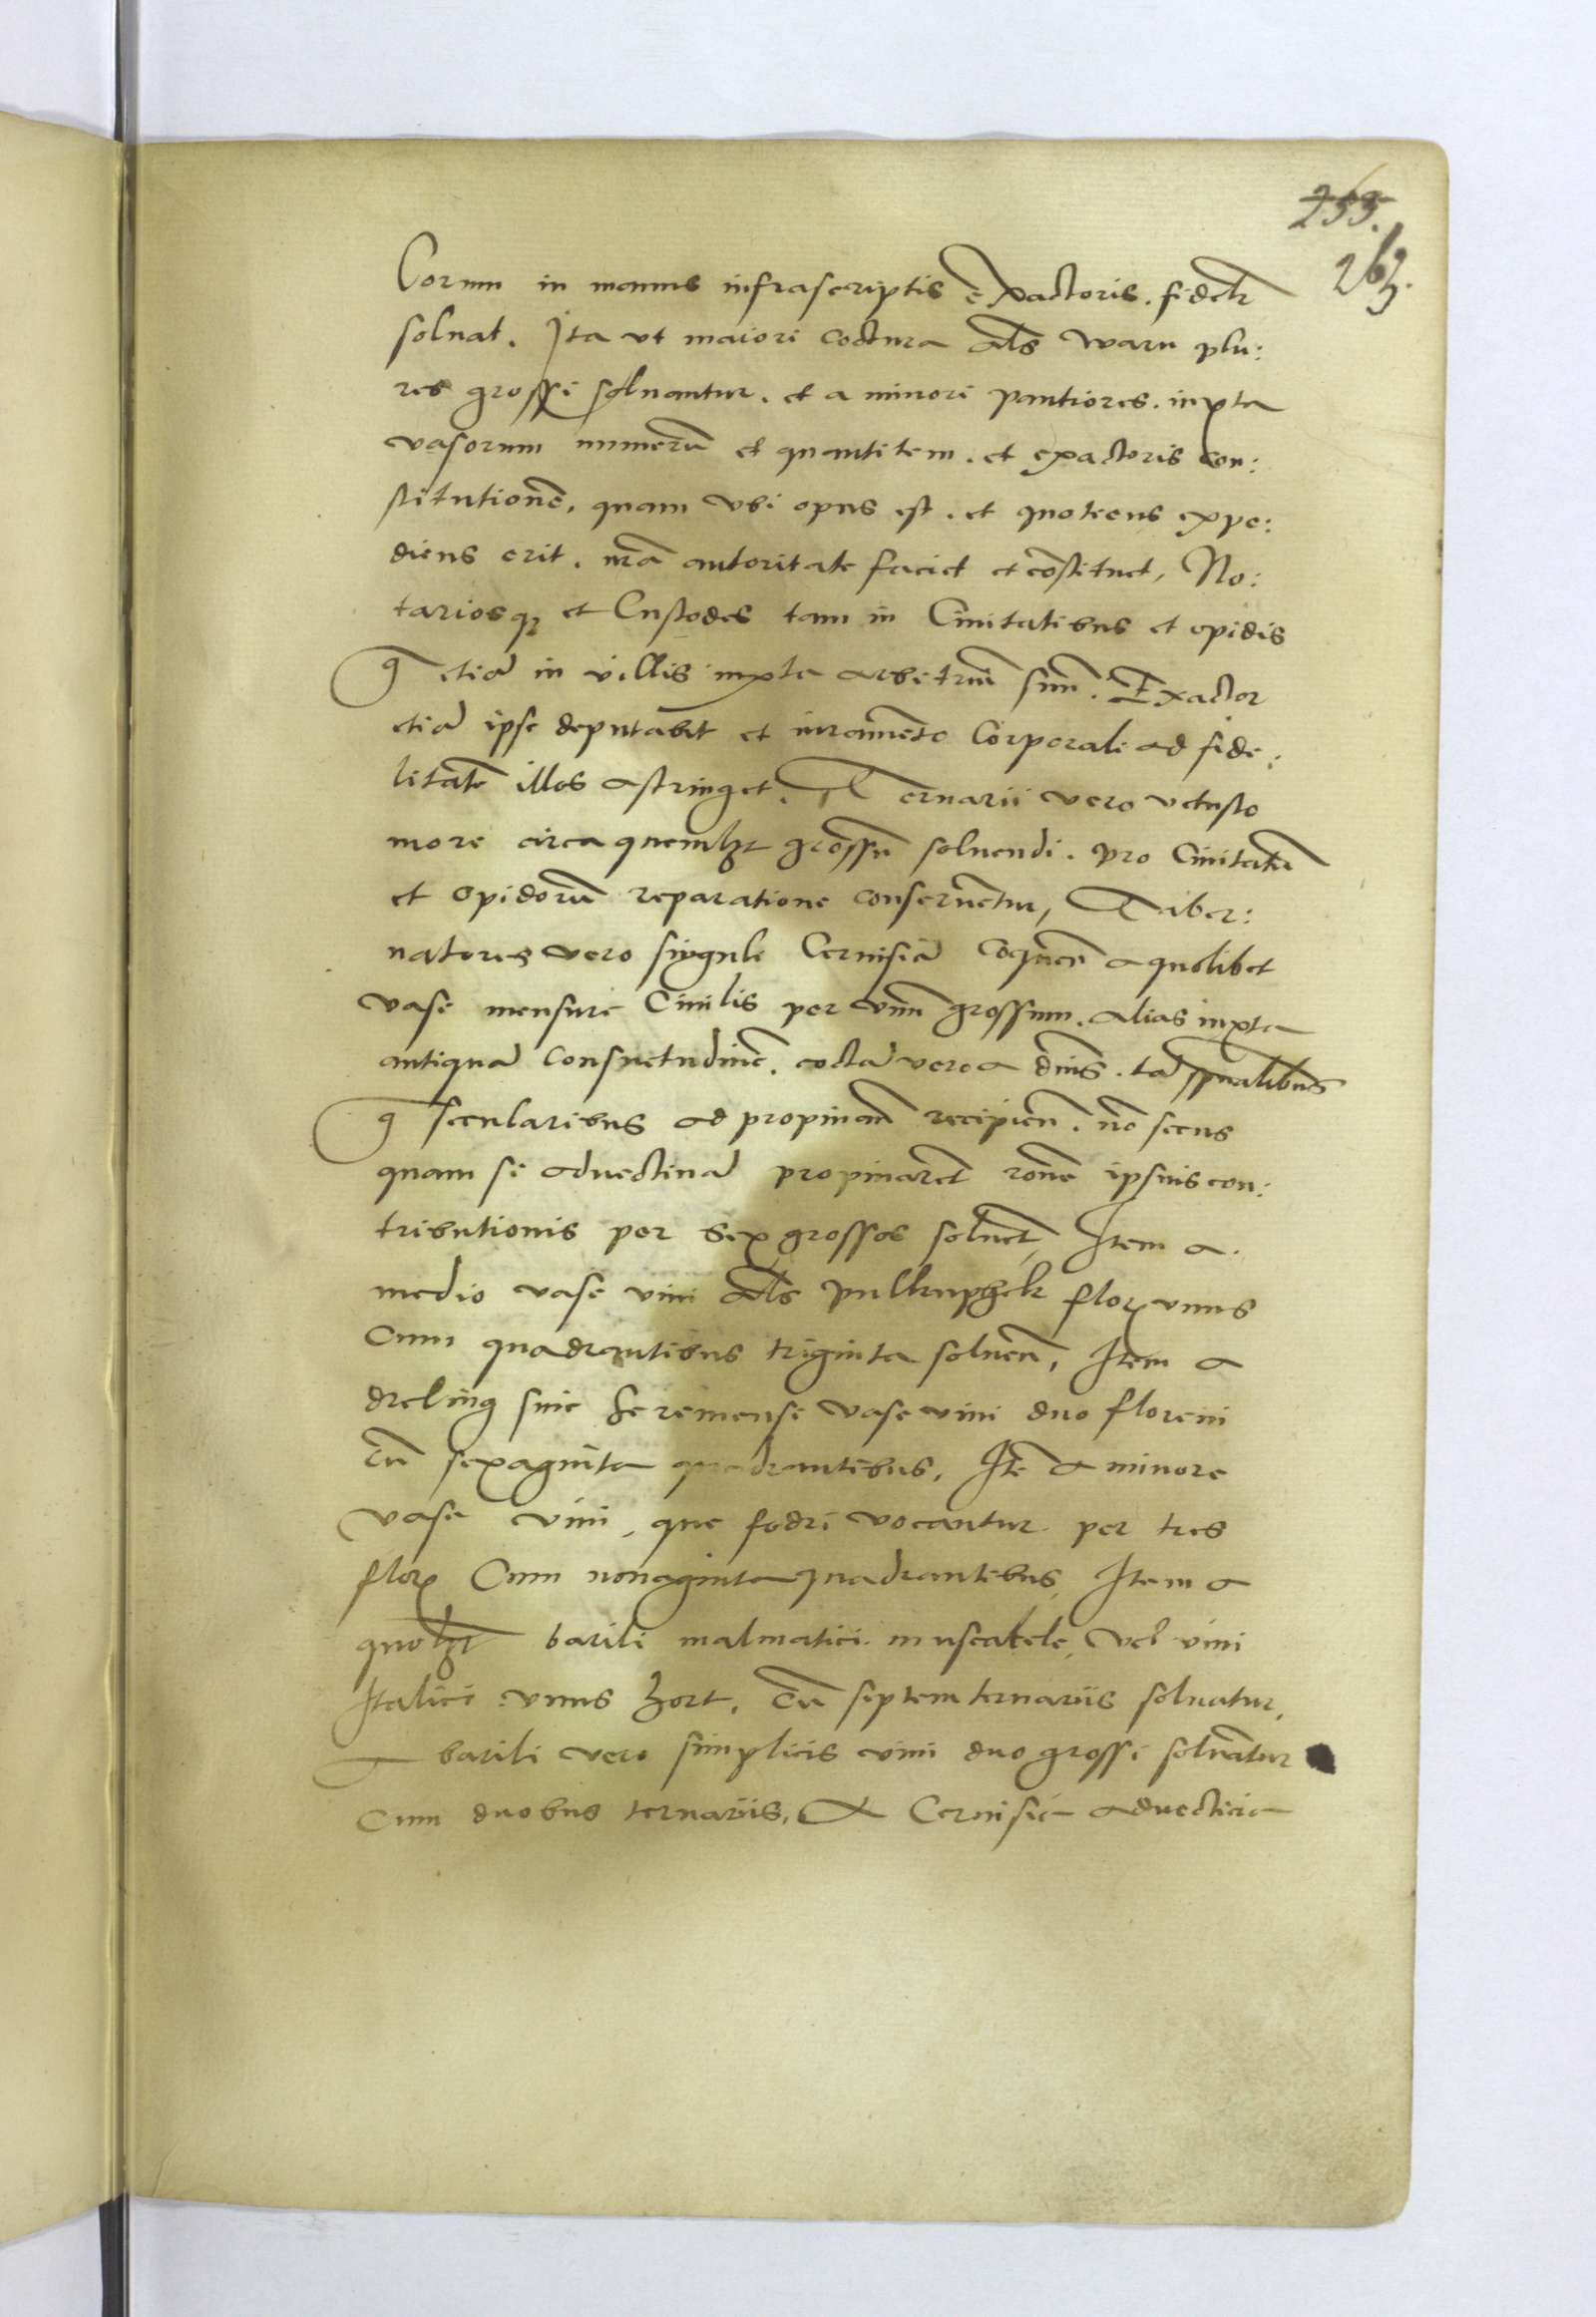 255.
263.
Corum in manus infrascriptis Exactoris. fidelr
soluat. Ita vt maiori coctura als waru plu:
res grossi soluantur. et a minori pautiores. iuxta
vasorum numerū et quantitem. et exactoris con:
stitutionē, quam vbi opus est. et quoteens expe:
diens erit. nrā autoritate faciet et cōstituet, No:
tariosq₃ et Custodes tam in Ciuitatibus et opidis
q̄ etiā in villis iuxta arbitriū suū. Exactor
etiā ipse deputabit et iuramēto Corporali ad fide:
litatē illos astringet. Ternarii vero vetusto
more circa quemlꝫt grossū soluendi. pro Ciuitatū
et opidorū reparatione conseruētur, Taber:
natores vero singuli Ceruisiā coquēn a quolibet
vase mensure Ciuilis per vnū grossum. alias iuxta
antiquā consuetudinē. coctā vero a dnīs. tā spualibus
q̄ secularibus ad propinanḋ recipieñ. nō secus
quam si aduectinā propinarēt rōne ipsius con:
tributionis per sex grossos soluēt, Item a
medio vase vini als pulkuphek flor vnus
Cum quadrantibus triginta solueñ, Item a
dreling siue heremense vase vini duo floreni
cū sexaginta quadrantibus, Itē a minore
vase vini, que fodri vocantur per tres
flor Cum nonaginta quadrantibus Item a
quolꝫt barili malmatici muscatele, vel vini
Italici vnus hort, cū septem ternariis soluatur,
A barili vero simplicis vini duo grossi soluātur
Cum duobus ternariis, A Ceruisie aduecticia